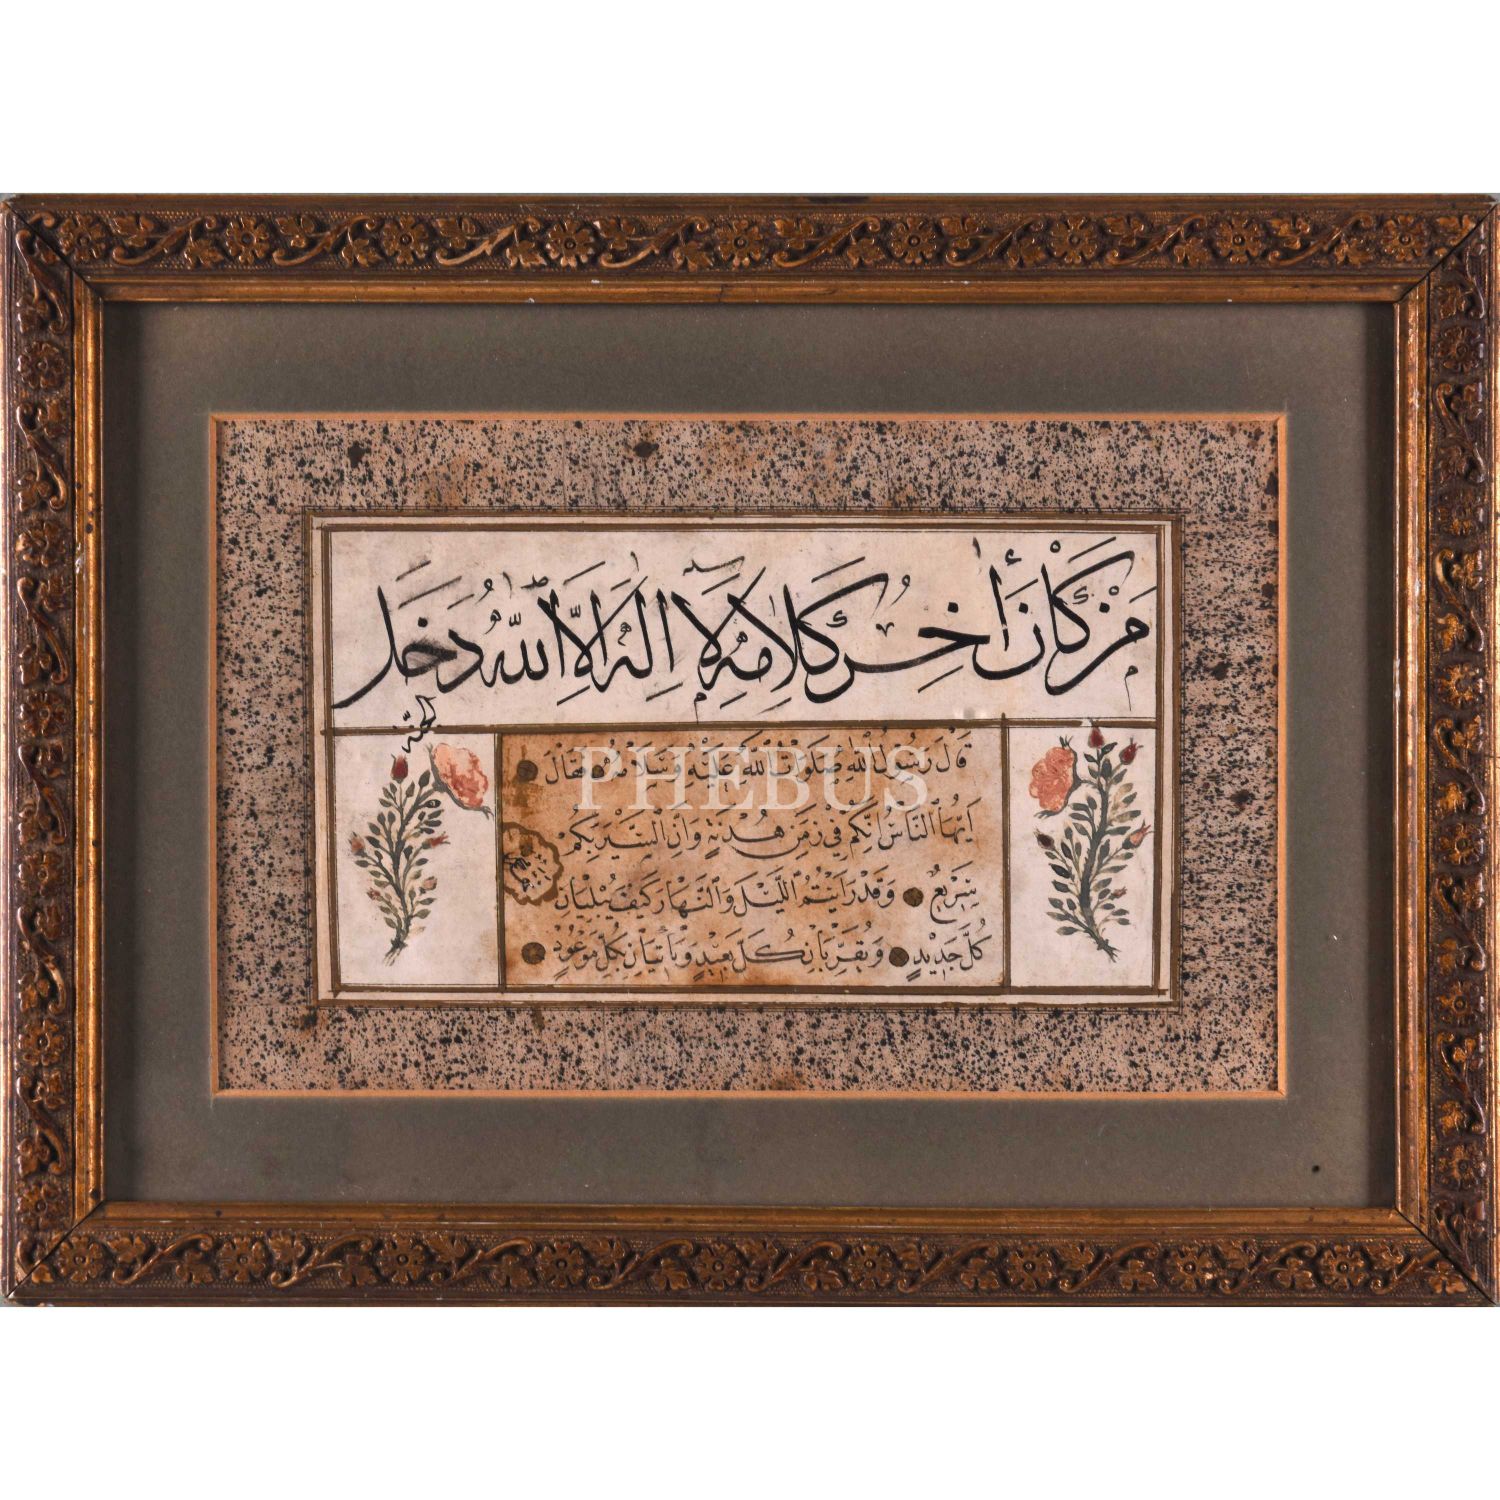 مَنْ كَانَ أٰخِرُ كَلَامِهِ لَا اِلٰهَ اِلَّا اللّٰهُ دَخَلَ
الجنّه
قَالَ رَسُولُ اللّٰهِ صَلَوَاتُ اللّٰهِ عَلَيْهِ وَسَلَامُهُ فَقَالَ
اَيُّهَا النَّاسُ اِنَّكُمْ فِي زَمَنِ هُدْنَةٍ وَاِنَّ السَّيْرَ بِكُمْ
سَرِيعٌ وَقَدْ رَاَيْتُمُ اللَّيْلَ وَالنَّهَارَ كَيْفَ يُبْلِيَانِ
كُلَّ جَدِيدٍ وَيُقَرِّبَانِ كُلَّ بَعِيدٍ وَيَأْتِيَانِ بِكُلِّ مَوْعُودٍ
PHEBUS